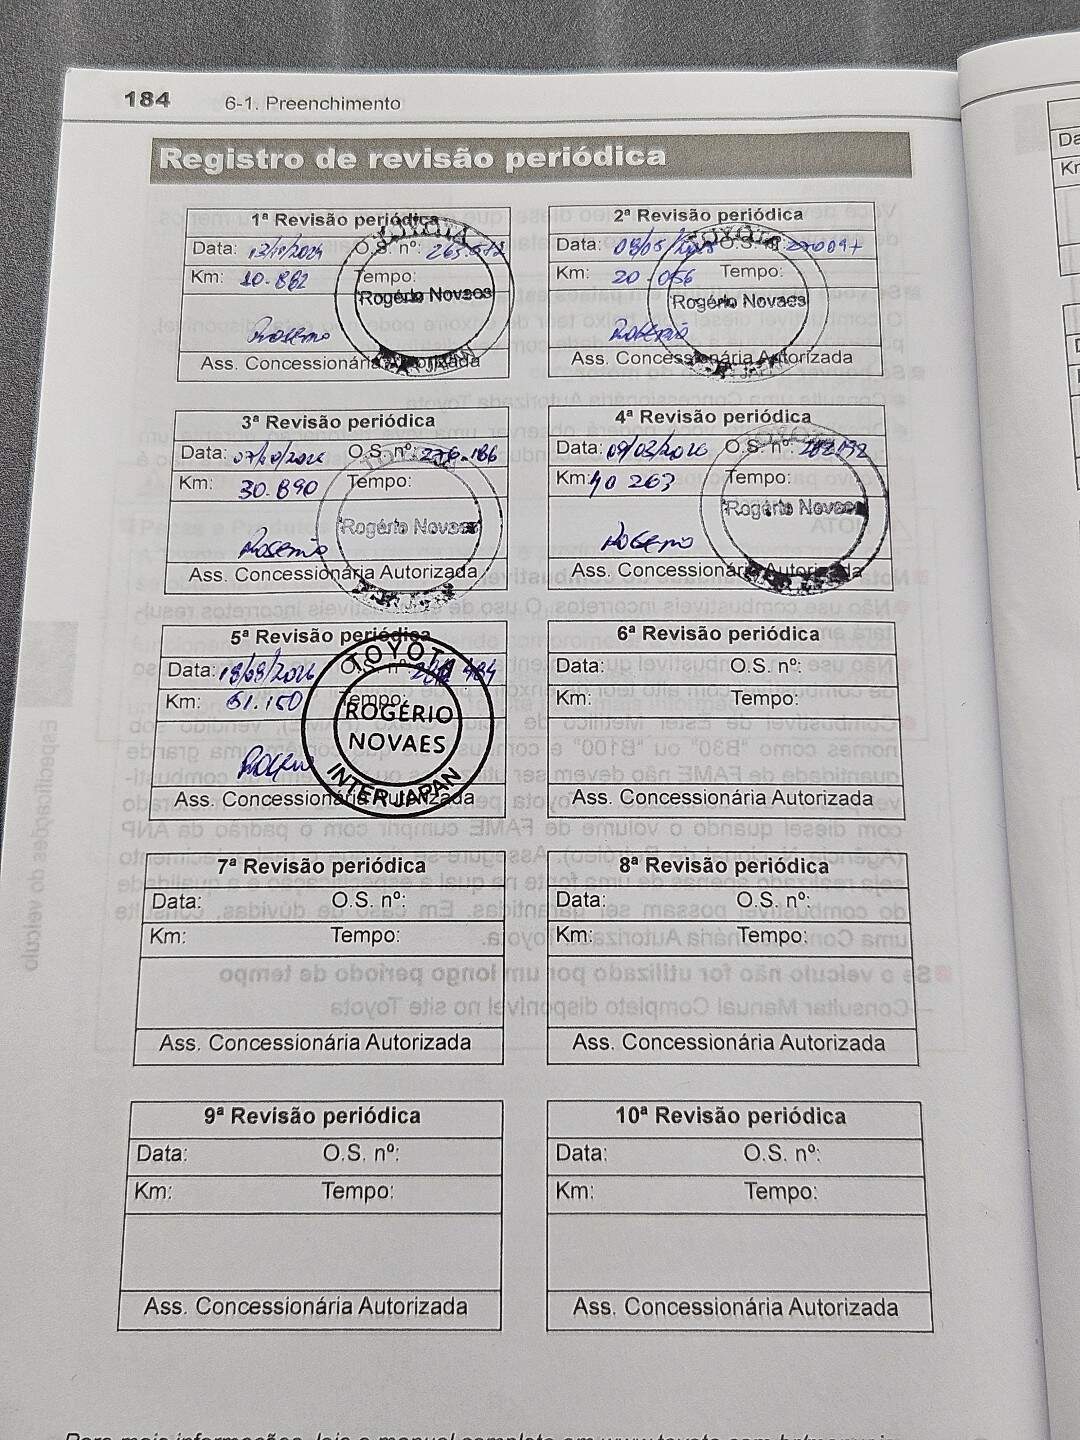 184 6-1. Preenchimento
Registro de revisão periódica
1ª Revisão periódica
Data: 13/11/2024 O.S. nº: 265.512
Km: 10.862 Tempo:
TOYOTA
Rogério Novaes
Rogério
Ass. Concessionária Autorizada
JAPAN
2ª Revisão periódica
Data: O.S. nº:
Km: 20.056 Tempo:
TOYOTA
Rogério Novaes
Rogério
Ass. Concessionária Autorizada
3ª Revisão periódica
Data: O.S. nº: 276.186
Km: 30.890 Tempo:
Rogério Novaes
Rogério
Ass. Concessionária Autorizada
4ª Revisão periódica
Data: 09/03/2026 O.S. nº:
Km: 40 263 Tempo:
Rogério Novaes
Rogério
Ass. Concessionária Autorizada
5ª Revisão periódica
Data: O.S. nº: 484
Km: 51.150 Tempo:
TOYOTA
ROGÉRIO
NOVAES
INTER JAPAN
Ass. Concessionária Autorizada
6ª Revisão periódica
Data: O.S. nº:
Km: Tempo:
Ass. Concessionária Autorizada
7ª Revisão periódica
Data: O.S. nº:
Km: Tempo:
Ass. Concessionária Autorizada
8ª Revisão periódica
Data: O.S. nº:
Km: Tempo:
Ass. Concessionária Autorizada
9ª Revisão periódica
Data: O.S. nº:
Km: Tempo:
Ass. Concessionária Autorizada
10ª Revisão periódica
Data: O.S. nº:
Km: Tempo:
Ass. Concessionária Autorizada
Especificações do veículo